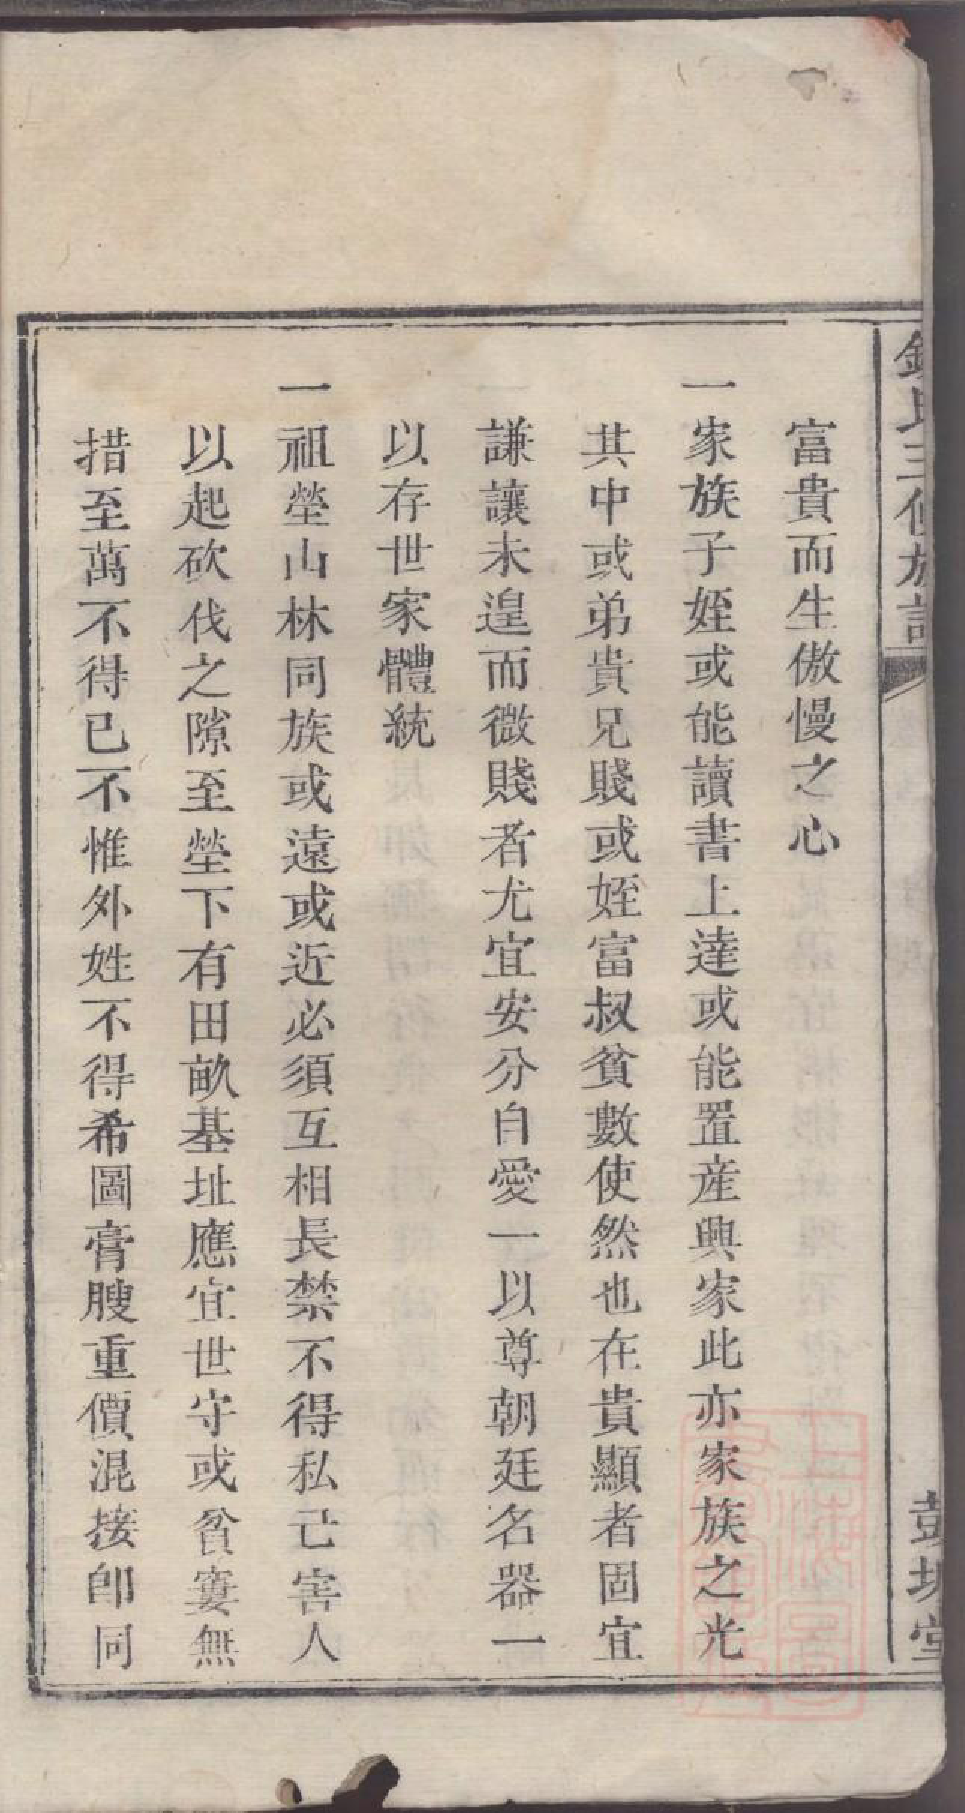 氏三修族譜
彭城堂
富貴而生傲慢之心
一家族子姪或能讀書上達或能置産興家此亦家族之光
其中或弟貴兄賤或姪富叔貧數使然也在貴顯者固宜
謙讓未遑而微賤者尤宜安分自愛一以尊朝廷名器一
以存世家體統
一祖塋山林同族或遠或近必須互相長禁不得私己害人
以起砍伐之隙至塋下有田畝基址應宜世守或貧窶無
措至萬不得已不惟外姓不得希圖膏腴重價混接卽同